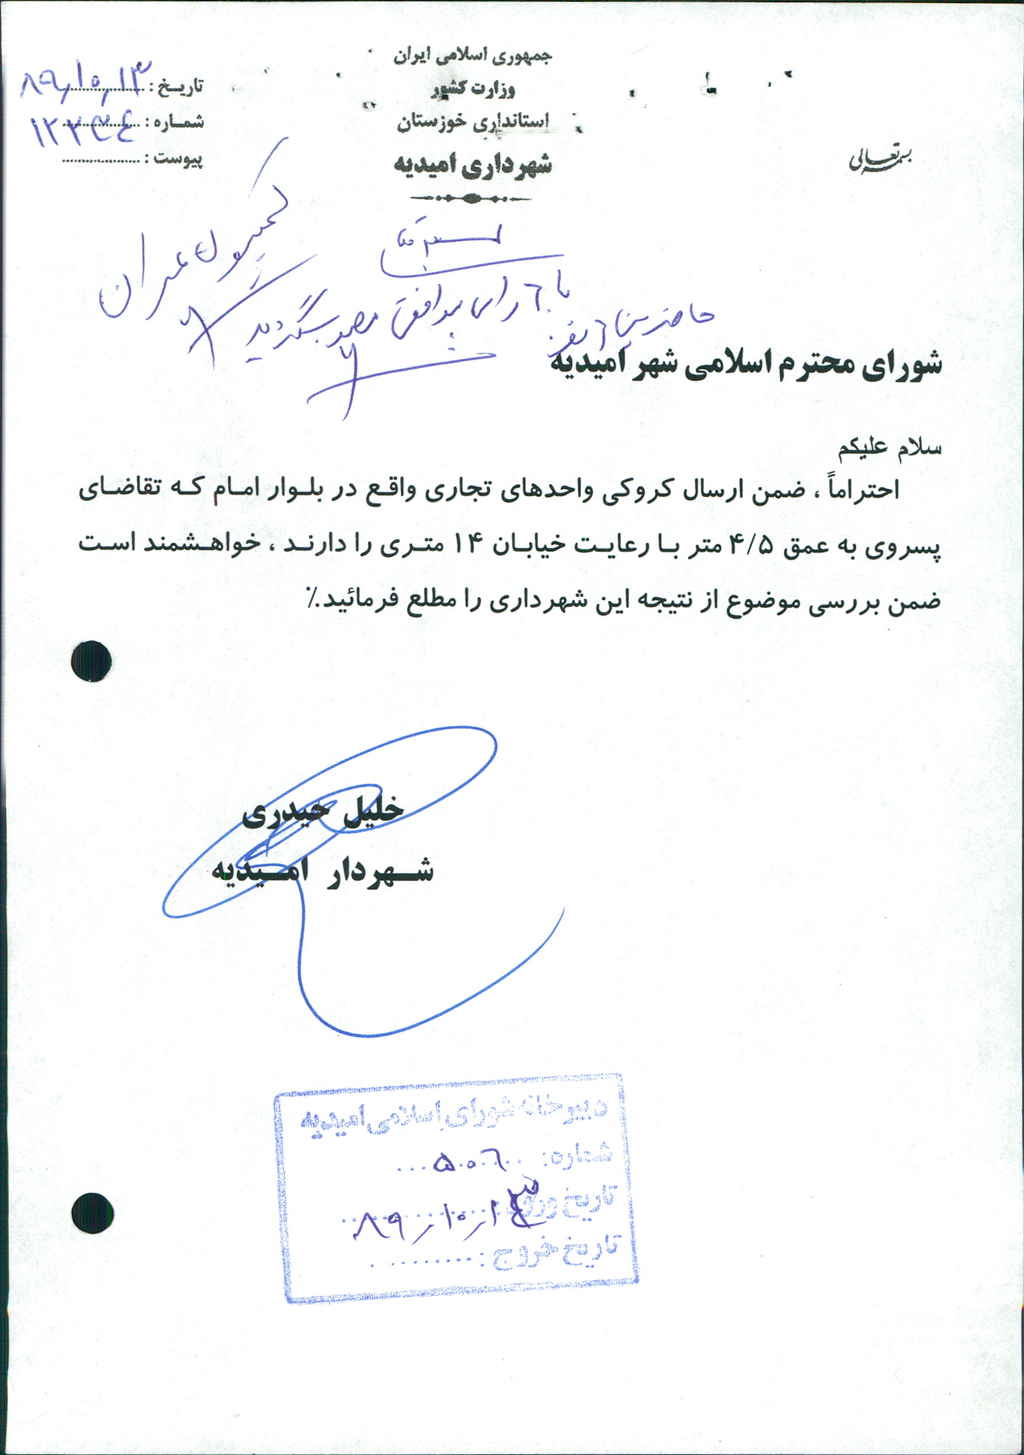 بسمه تعالی
جمهوری اسلامی ایران
وزارت کشور
استانداری خوزستان
شهرداری امیدیه
تاریـخ : ۸۹٫۱۰٫۱۳
شمـاره : ۱۲۳۴۴
پیوست : ....................
کمیسیون عمران
بسمه تعالی
با ۶ رای موافق مصوب گردید
حاضرین ۶ نفر
شورای محترم اسلامی شهر امیدیه
سلام علیکم
احتراماً ، ضمن ارسال کروکی واحدهای تجاری واقـع در بلـوار امـام کـه تقاضـای
پسروی به عمق ۴/۵ متر بـا رعایـت خیابـان ۱۴ متـری را دارنـد ، خواهـشمند اسـت
ضمن بررسی موضوع از نتیجه این شهرداری را مطلع فرمائید.٪
خلیل حیدری
شــهردار امــیدیه
دبیرخانه شورای اسلامی امیدیه
شماره: ۵۰۰۶
تاریخ ورود: ۸۹٫۱۰٫
تاریخ خروج : .........